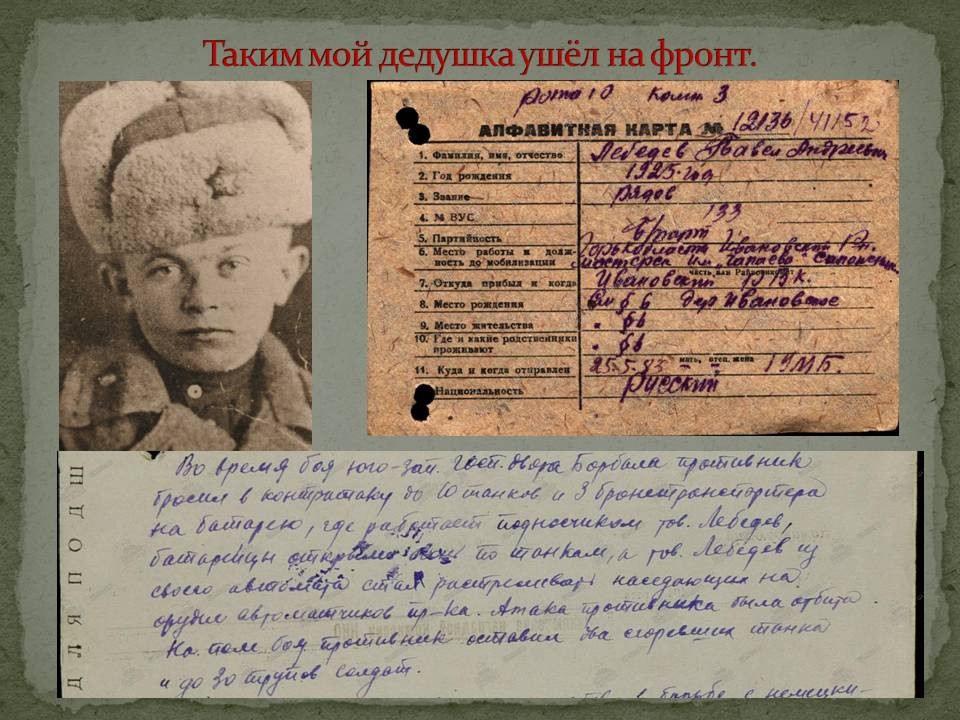 Таким мой дедушка ушёл на фронт.
рота 10 комн 3
АЛФАВИТНАЯ КАРТА № 12136/41152
1. Фамилия, имя, отчество Лебедев Павел Андреевич
2. Год рождения 1925 год
3. Звание рядов
4. № ВУС 133
5. Партийность
6. Место работы и долж-
ность до мобилизации
часть или Райвоенкомат
7. Откуда прибыл и когда Ивановский РВК.
8. Место рождения Ивановское
9. Место жительства
10. Где и какие родственники
проживают
мать, отец, жена
11. Куда и когда отправлен
Национальность Русский
ДЛЯ ПОДШ
Во время боя юго-зап. Госп. двора Борбала противник
бросил в контратаку до 10 танков и 3 бронетранспортера
на батарею, где работает подносчиком тов. Лебедев,
батарейцы открыли по танкам, а тов. Лебедев из
своего автомата стал расстреливать наседающих на
орудие автоматчиков пр-ка. Атака противника была отбита.
На поле боя противник оставил два сгоревших танка
и до 30 трупов солдат.
борьбе с немецки-